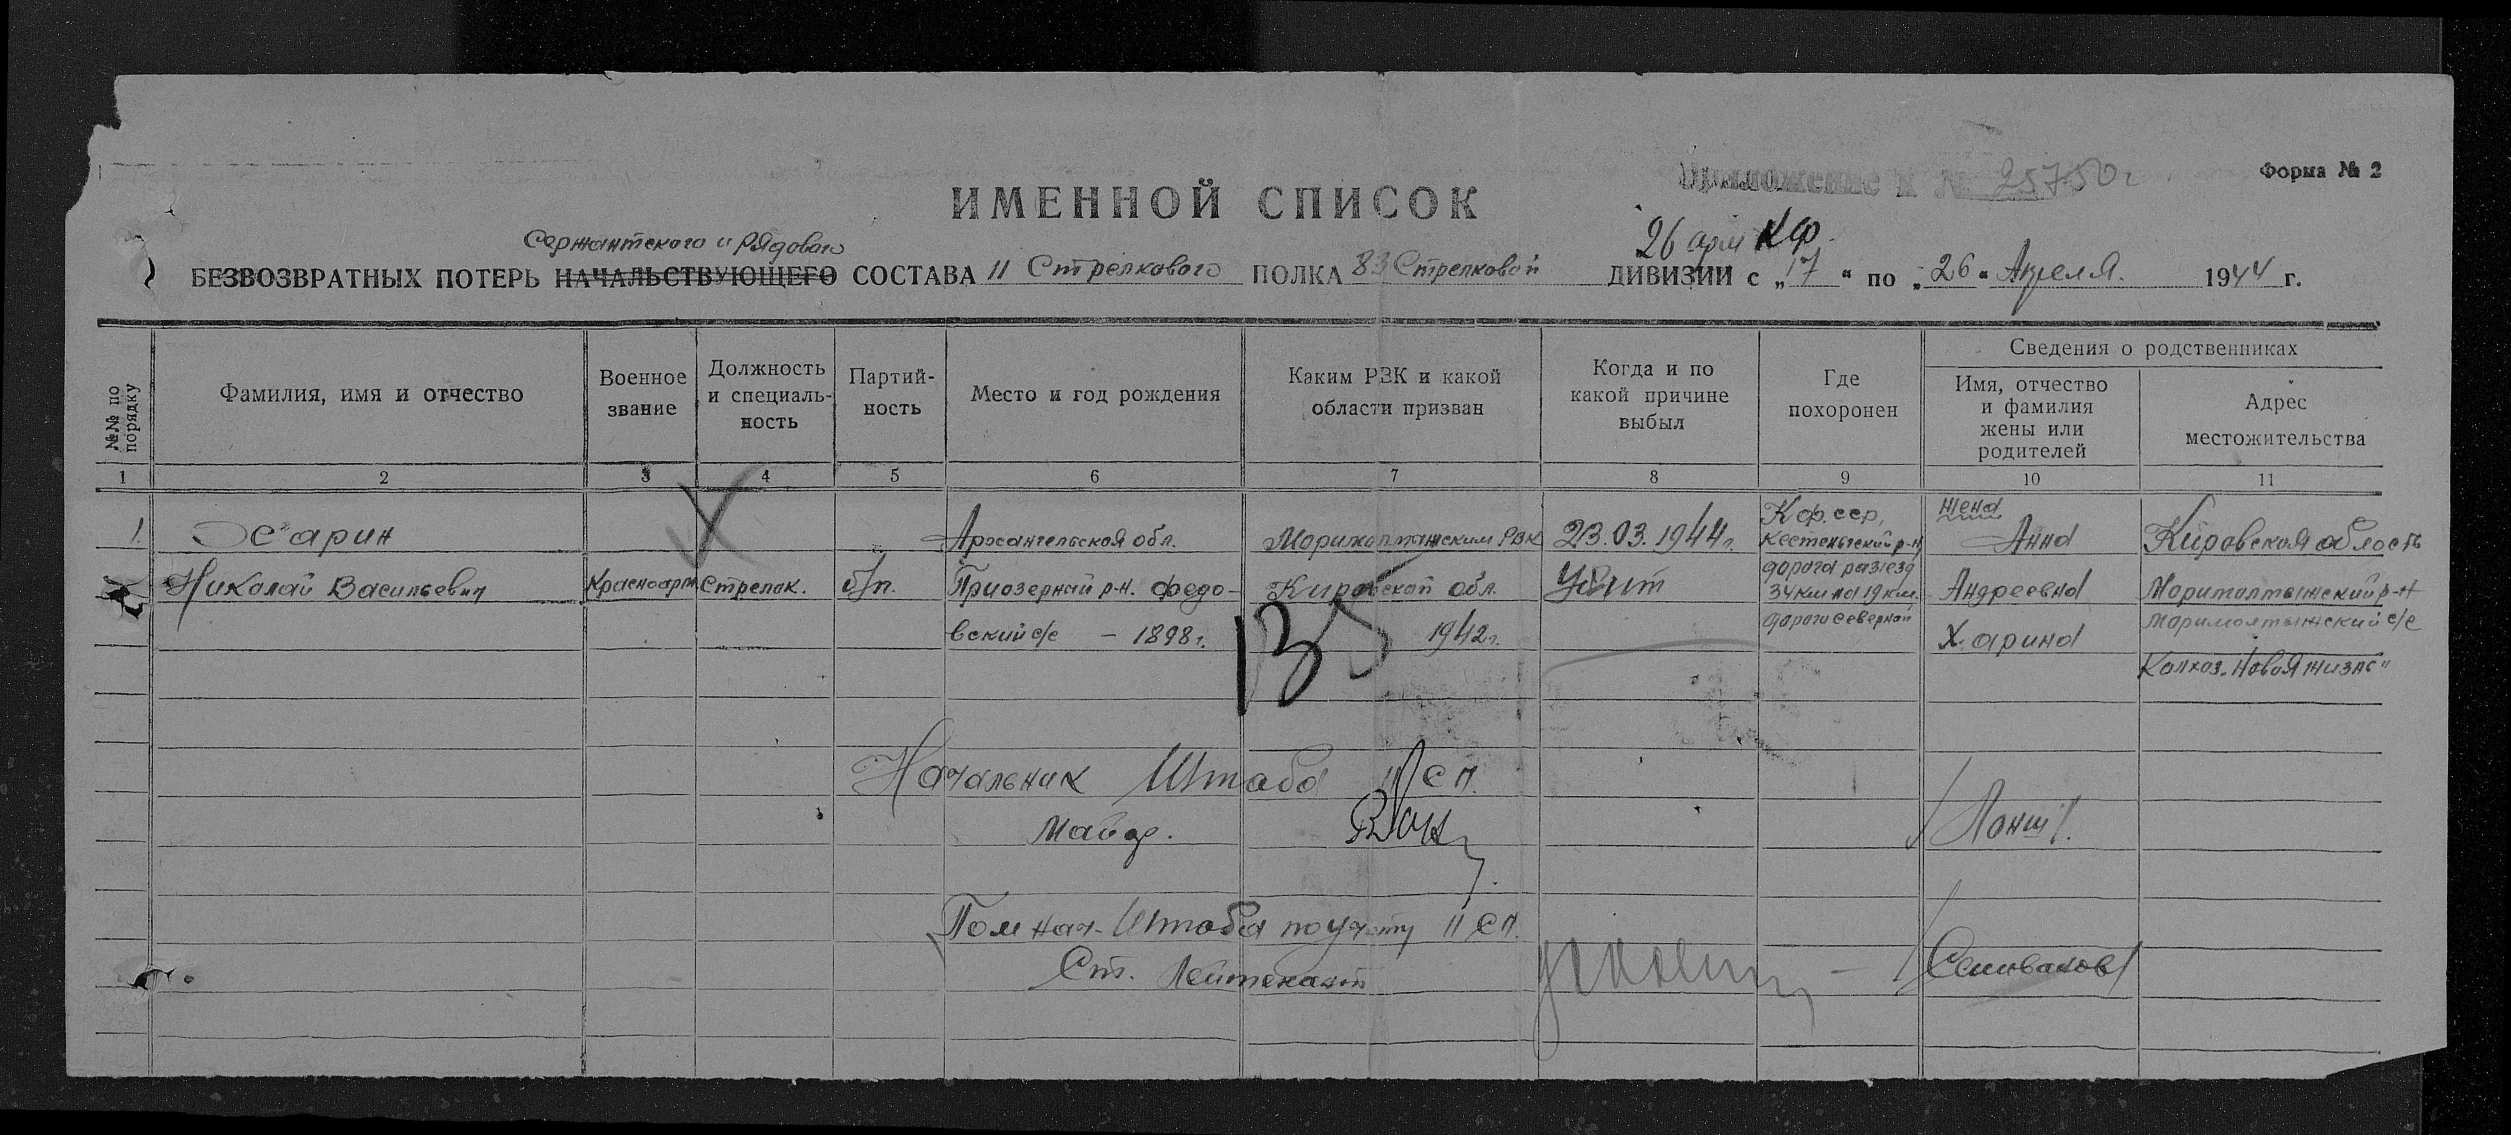 Приложение к № 25750с
Форма № 2
ИМЕННОЙ СПИСОК
26 арм КФ.
Сержантского и Рядового
БЕЗВОЗВРАТНЫХ ПОТЕРЬ НАЧАЛЬСТВУЮЩЕГО СОСТАВА 11 Стрелкового ПОЛКА 83 Стрелковой ДИВИЗИИ с „17“ по „26“ Апреля 1944 г.
№№ по порядку
Фамилия, имя и отчество
Военное
звание
Должность
и специаль-
ность
Партий-
ность
Место и год рождения
Каким РВК и какой
области призван
Когда и по
какой причине
выбыл
Где
похоронен
Сведения о родственниках
Имя, отчество
и фамилия
жены или
родителей
Адрес
местожительства
1 2 3 4 5 6 7 8 9 10 11
1.
Харин
Николай Васильевич
Красноарм.
Стрелок.
б/п.
Архангельская обл.
Приозерный р-н. Федо-
вский с/с – 1898 г.
РВК
Кировской обл.
1942 г.
23.03.1944 г.
Убит
К.Ф.ССР,
Кестеньгский р-н
дорога разъезд
34 км на 19 км.
дороги северной
жена
Анна
Андреевна
Харина
Кировская область
с/с
Колхоз „Новая жизнь"
Начальник Штаба 11 СП.
Майор.
Пом нач. Штаба по учету 11 СП.
Ст. Лейтенант